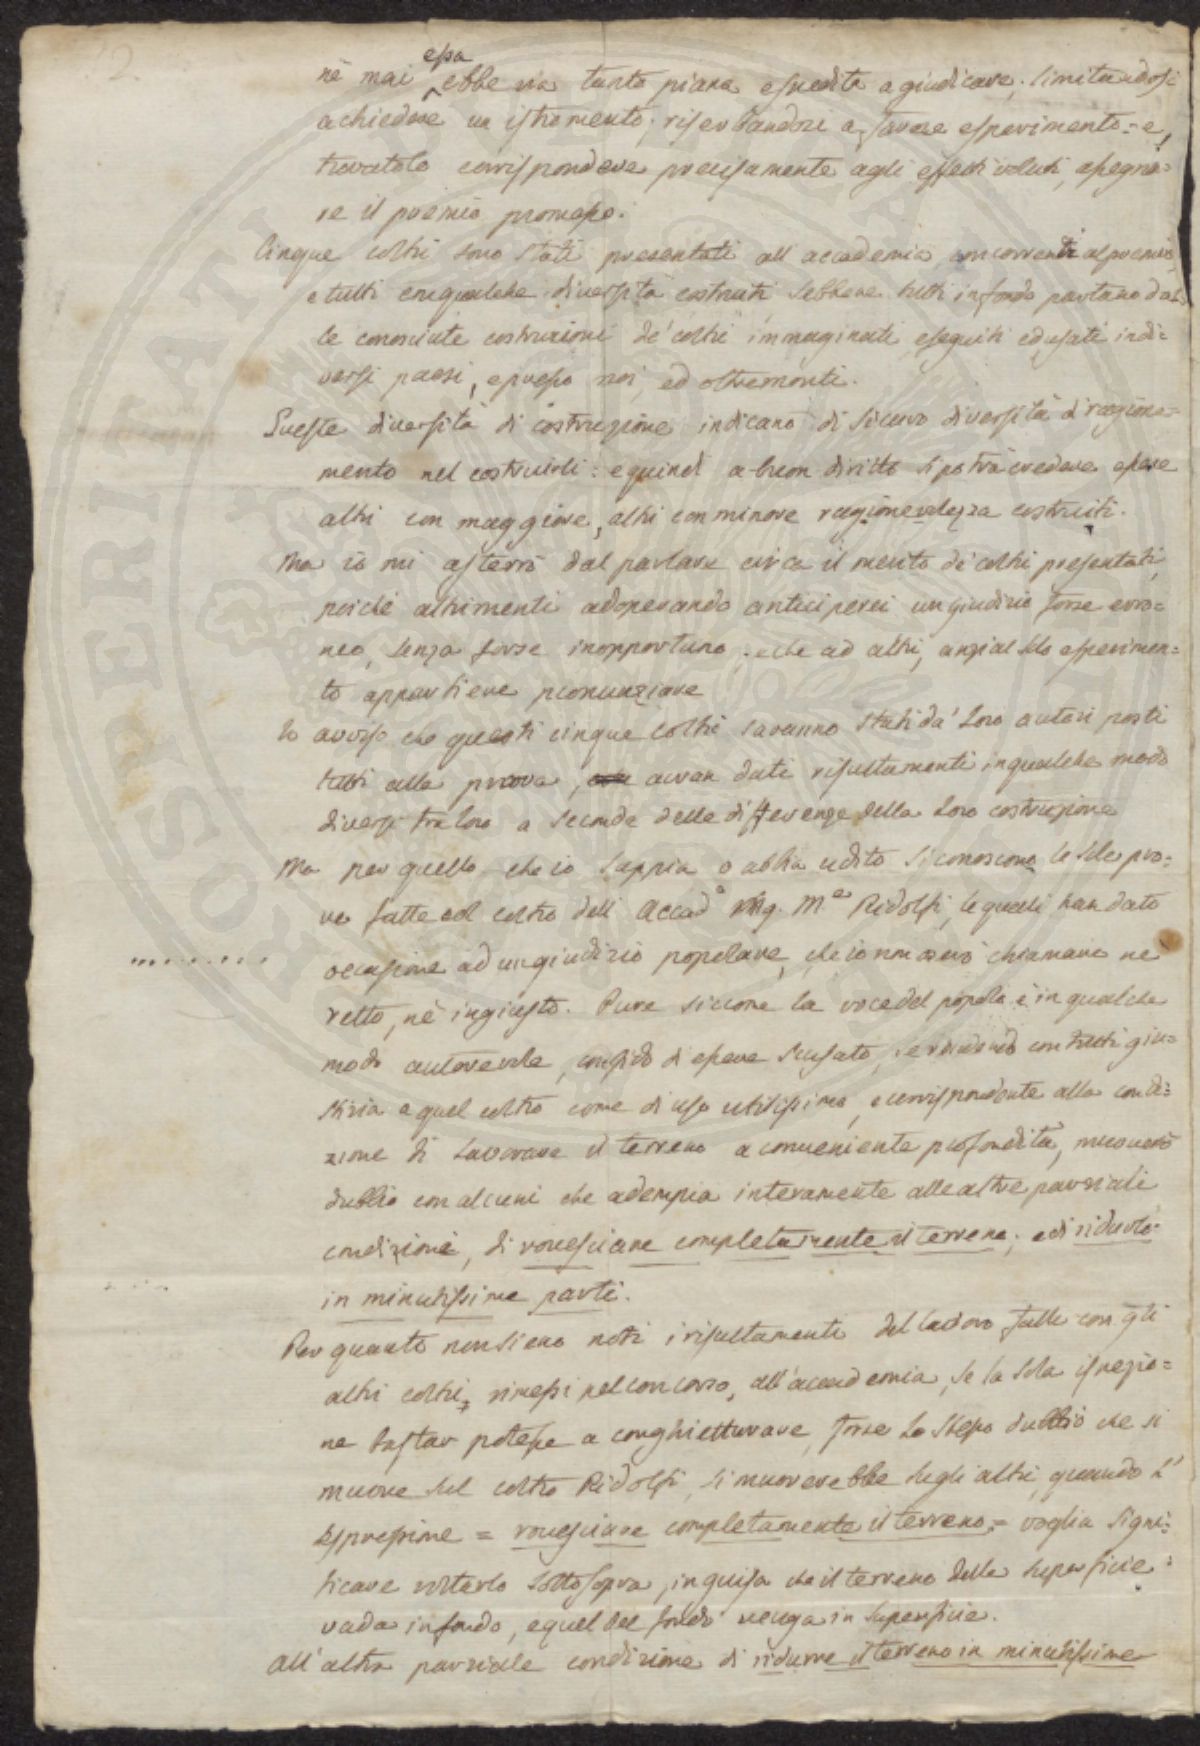 2
essa
nè mai ^ ebbe via tanto piana e spedita a giudicare; limitandosi
a chiedere un istromento; riserbandosi a farne esperimento = e,
trovatolo corrispondere precisamente agli effetti voluti, assegna=
re il premio promesso.
Cinque coltri sono stati presentati all'accademia, concorrenti al premio,
e tutti con qualche diversità costruiti, sebbene tutti in fondo partano dal=
le conosciute costruzioni de' coltri immaginati eseguiti ed usati in di=
versi paesi, e presso noi, ed oltremonti.
Queste diversità di costruzione indicano di sicuro diversità di ragiona=
mento nel costruirli: e quindi a buon diritto si potrà credere essere
altri con maggiore, altri con minore ragionevolezza costruiti.
Ma io mi asterrò dal parlare circa il merito de' coltri presentati,
poichè altrimenti adoperando anticiperei un giudizio forse erro=
neo, senza forse inopportuno; e che ad altri, anzi al solo esperimen=
to appartiene pronunziare
Io avviso che questi cinque coltri saranno stati da' loro autori posti
tutti alla prova, avran dati risultamenti in qualche modo
diversi tra loro a seconda delle differenze della loro costruzione
Ma per quello che io sappia o abbia udito si conoscono le sole pro=
ve fatte col coltro dell'Accad.o Sig. M.e Ridolfi, le quali han dato
occasione ad un giudizio popolare, che io non oserò chiamare nè
retto, nè ingiusto. Pure siccome la voce del popolo è in qualche
modo autorevole, confido di essere scusato, se rendendo con tutti giu=
stizia a quel coltro come di uso utilissimo, e corrispondente alla condi=
zione di lavorare il terreno a conveniente profondità, muoverò
dubbio con alcuni che adempia interamente alle altre parziali
condizioni, di rovesciare completamente il terreno; e di ridurlo
in minutissime parti.
Per quanto non sieno noti i risultamenti del lavoro fatto con gli
altri coltri, rimessi nel concorso, all'accademia, se la sola ispezio=
ne bastar potesse a conghietturare, forse lo stesso dubbio che si
muove sul coltro Ridolfi, si muoverebbe sugli altri, quando l'
espressione = rovesciare completamente il terreno = voglia signi=
ficare voltarlo sottosopra, in guisa che il terreno della superficie
vada in fondo, e quel del fondo venga in superficie.
All'altra parziale condizione di ridurre il terreno in minutissime